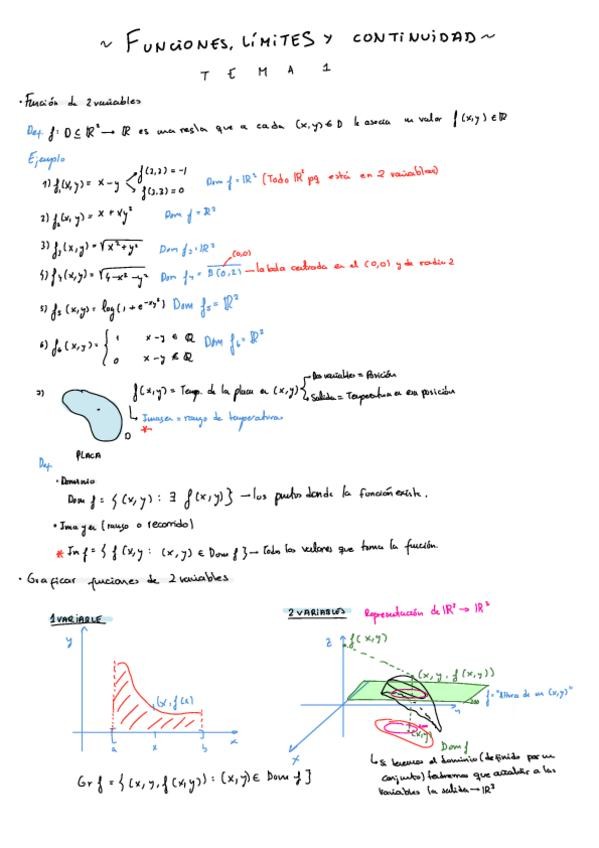 ~ FUNCIONES, LÍMITES Y CONTINUIDAD ~
TEMA 1
· Función de 2 variables
Def f: D ⊆ ℝ² → ℝ es una regla que a cada (x,y) ∈ D le asocia un valor f(x,y) ∈ ℝ
Ejemplo
1) f₁(x,y) = x - y f(2,3) = -1 f(3,3) = 0 Dom f = ℝ² (Todo ℝ² pq está en 2 variables)
2) f₂(x,y) = x + xy² Dom f = ℝ²
3) f₃(x,y) = √x² + y² Dom f₃ = ℝ²
(0,0)
4) f₄(x,y) = √4 - x² - y² Dom f₄ = B(0,2) → la bola centrada en el (0,0) y de radio 2
5) f₅(x,y) = log(1 + e^-xy²) Dom f₅ = ℝ²
6) f₆(x,y) = { 1 x - y ∈ ℚ Dom f₆ = ℝ²
0 x - y ∉ ℚ
7) f(x,y) = Temp. de la placa en (x,y) Dos variables = Posición
Salida = Temperatura en esa posición
Imagen = rango de temperaturas
*
D
PLACA
Def
· Dominio
Dom f = { (x,y) : ∃ f(x,y) } → los puntos donde la función existe.
· Imagen (rango o recorrido)
* Im f = { f(x,y : (x,y) ∈ Dom f } → Todos los valores que toma la función.
· Graficar funciones de 2 variables
1 VARIABLE
2 VARIABLES Representación de ℝ² → ℝ³
y
(x, f(x)
a x b x
z f(x,y)
(x, y, f(x,y))
f = "Altura de un (x,y)"
(x,y)
x
Dom f
Si tenemos el dominio (definido por un
conjunto) tendremos que añadir a las
variables la salida → ℝ³
Gr f = { (x, y, f(x,y)) : (x,y) ∈ Dom f }